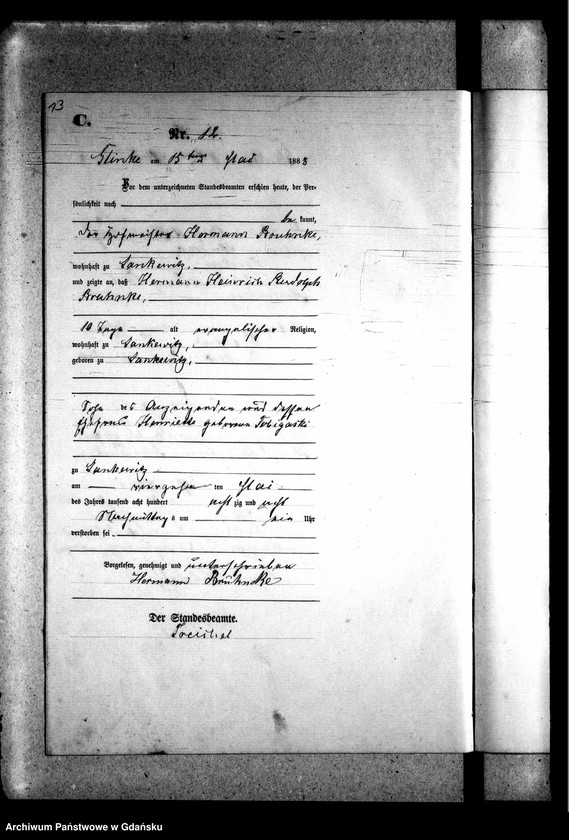 13
C.
Nr. 12.
Glincke am 15ten Mai 1888
Vor dem unterzeichneten Standesbeamten erschien heute, der Per-
sönlichkeit nach
be kannt,
der Hofmeister Hermann
wohnhaft zu Sankewitz,
und zeigte an, daß Hermann Heinrich Rudolph
10 Tage alt evangelischer Religion,
wohnhaft zu Sankewitz,
geboren zu Sankewitz,
Sohn des Anzeigenden und dessen
Ehefrau Henriette geborene
zu Sankewitz
am vierzehn ten Mai
des Jahres tausend acht hundert acht zig und acht
Nachmittags um ein Uhr
verstorben sei.
Vorgelesen, genehmigt und unterschrieben
Hermann
Der Standesbeamte.
Treichel
Archiwum Państwowe w Gdańsku